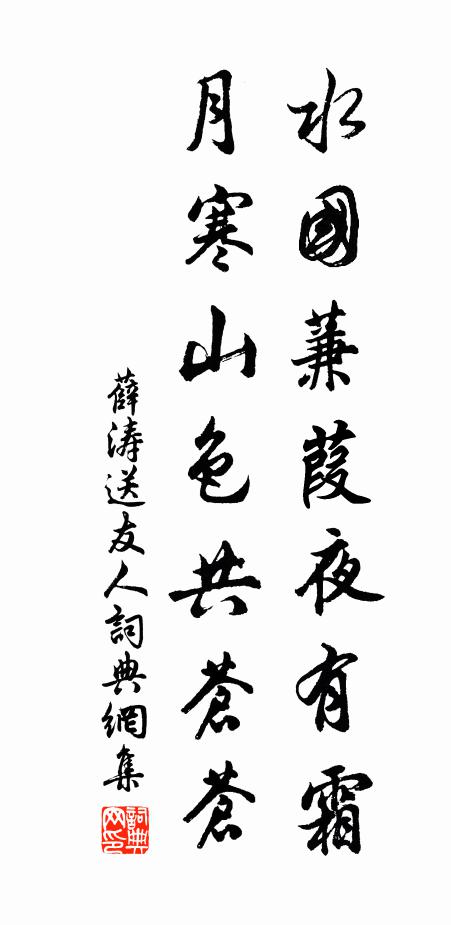 水國蒹葭夜有霜
月寒山色共蒼蒼
薛濤送友人詞典網集
詞典网印